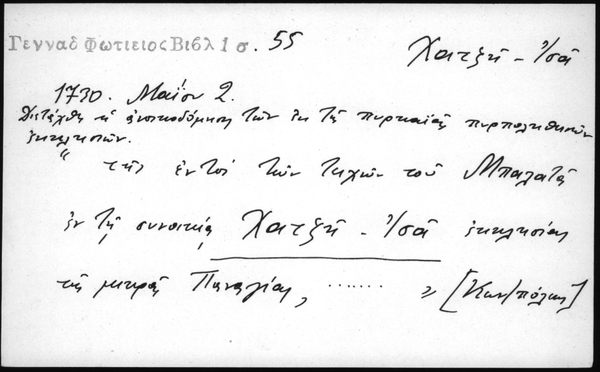 Γενναδ Φωτιειος Βιβλ 1 σ. 55
Χατζῆ - Ἰσᾶ
1730. Μαΐου 2.
Διετάχθη ἡ ἀνοικοδόμησις τῶν ἐκ τῆς πυρκαϊᾶς πυρποληθεισῶν
ἐκκλησιῶν.
" τῆς ἐντὸς τῶν τειχῶν τοῦ Μπαλατᾶ
ἐν τῇ συνοικίᾳ Χατζῆ - Ἰσᾶ ἐκκλησίας
τῆς μικρᾶς Παναγίας, ....... " [Κων/πόλεως]